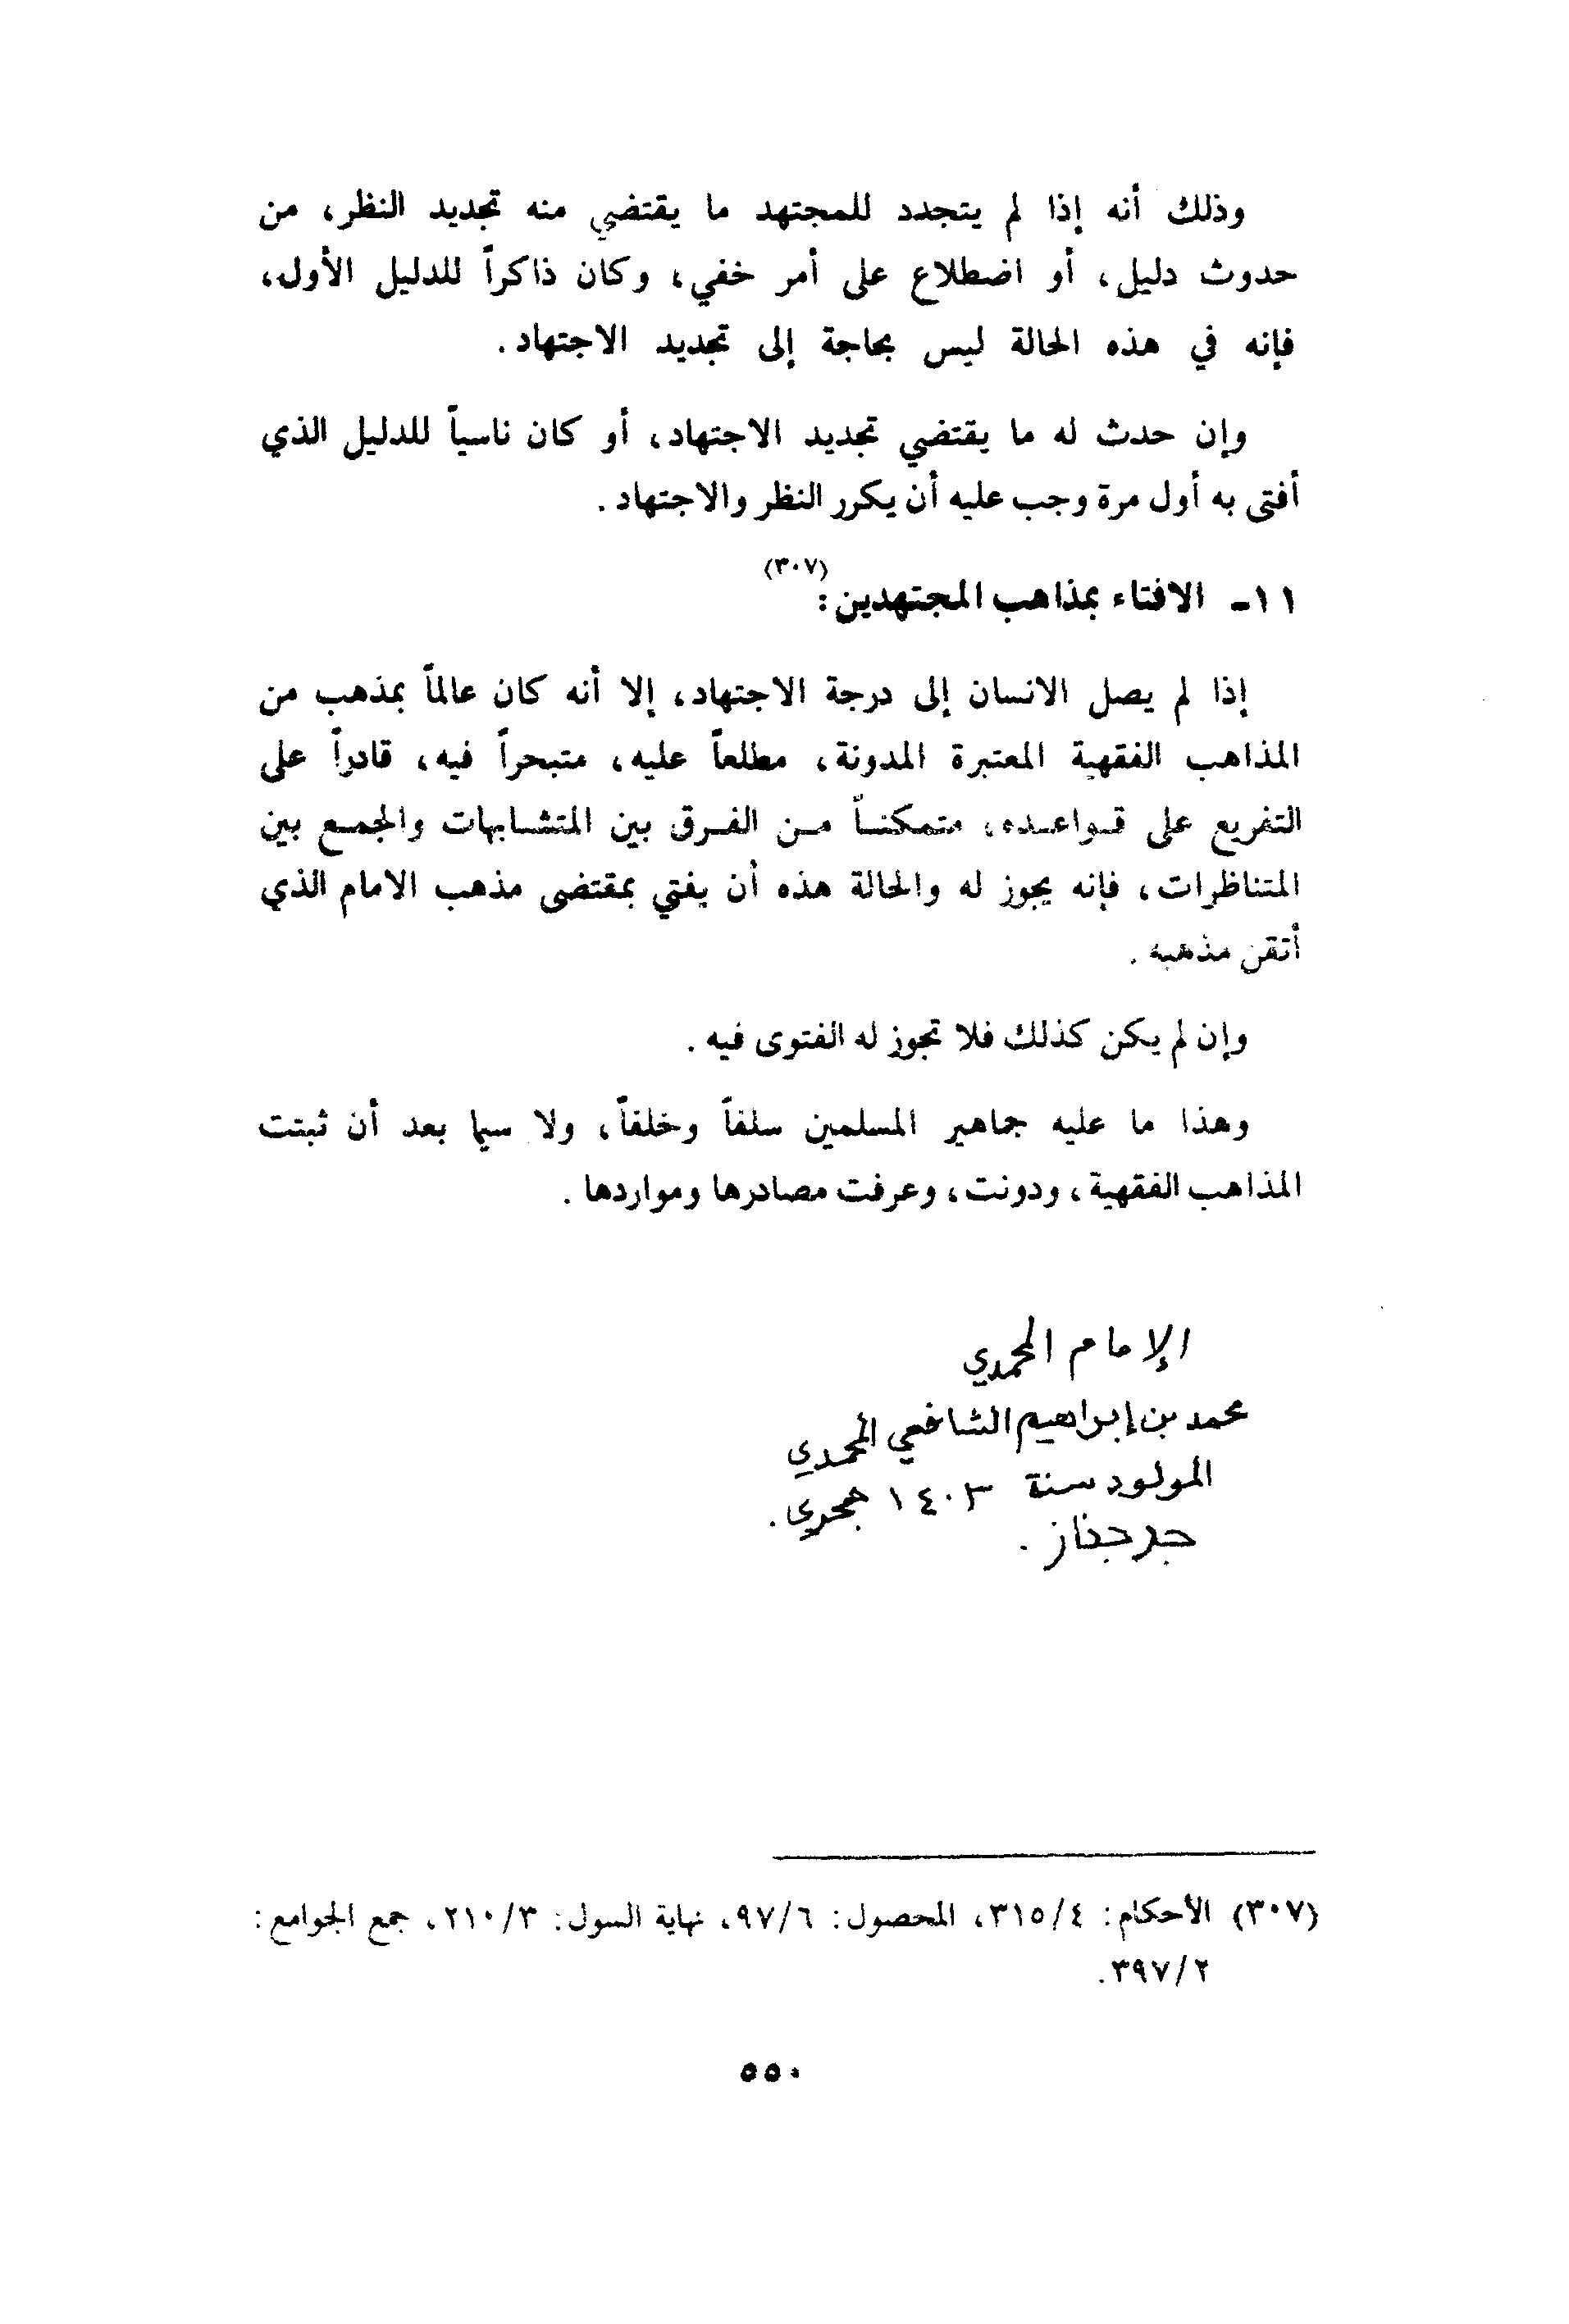 وذلك أنه إذا لم يتجدد للمجتهد ما يقتضي منه تجديد النظر، من
حدوث دليل، أو اضطلاع على أمر خفي، وكان ذاكراً للدليل الأول،
فإنه في هذه الحالة ليس بحاجة إلى تجديد الاجتهاد.
وإن حدث له ما يقتضي تجديد الاجتهاد، أو كان ناسياً للدليل الذي
أفتى به أول مرة وجب عليه أن يكرر النظر والاجتهاد.
١١ـ الافتاء بمذاهب المجتهدين:(٣٠٧)
إذا لم يصل الانسان إلى درجة الاجتهاد، إلا أنه كان عالماً بمذهب من
المذاهب الفقهية المعتبرة المدونة، مطلعاً عليه، متبحراً فيه، قادراً على
التفريع على قواعده، متمكناً من الفرق بين المتشابهات والجمع بين
المتناظرات، فإنه يجوز له والحالة هذه أن يفتي بمقتضى مذهب الامام الذي
أتقن مذهبه.
وإن لم يكن كذلك فلا تجوز له الفتوى فيه.
وهذا ما عليه جماهير المسلمين سلفاً وخلفاً، ولا سيما بعد أن ثبتت
المذاهب الفقهية، ودونت، وعرفت مصادرها ومواردها.
الإمام المحمدي
محمد بن إبراهيم الشافعي المحمدي
المولود سنة ١٤٠٣ هجري.
جرجناز.
(٣٠٧) الأحكام: ٣١٥/٤، المحصول: ٩٧/٦، نهاية السول: ٢١٠/٣، جمع الجوامع:
٣٩٧/٢.
٥٥٠